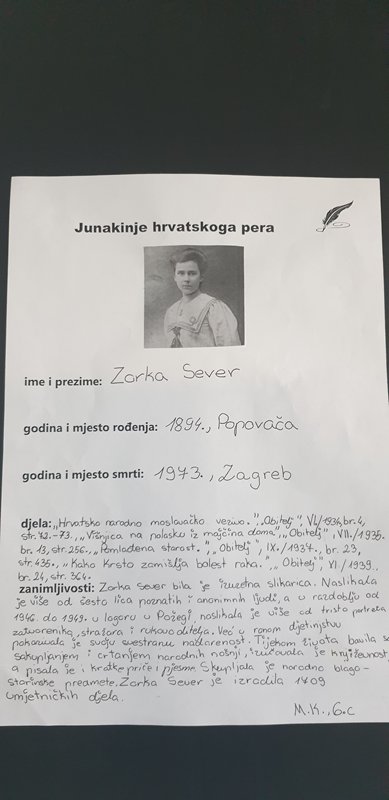 Junakinje hrvatskoga pera
ime i prezime: Zorka Sever
godina i mjesto rođenja: 1894., Popovača
godina i mjesto smrti: 1973., Zagreb
djela: „Hrvatsko narodno moslavačko vezivo.", „Obitelj", VI./1934, br. 4,
str. 72.-73., „Višnjica na polasku iz majčina doma", „Obitelj", VII./1935.
br. 13, str. 256., „Pomlađena starost.", „Obitelj", IX./1937., br. 23,
str. 435., „Kako Krsto zamišlja bolest raka.", „Obitelj", XI/1939.
br. 24, str. 364.
zanimljivosti: Zorka Sever bila je izuzetna slikarica. Naslikala
je više od šesto lica poznatih i anonimnih ljudi, a u razdoblju od
1946. do 1949. u logoru u Požegi naslikala je više od tristo portreta
zatvorenika, stražara i rukovoditelja. Već u ranom djetinjstvu
pokazivala je svoju svestranu nadarenost. Tijekom života bavila se
sakupljanjem i crtanjem narodnih nošnji, izučavala je književnost,
a pisala je i kratke priče i pjesme. Skupljala je narodno blago-
starinske predmete. Zorka Sever je izradila 1709
umjetničkih djela.
M.K., 6.c